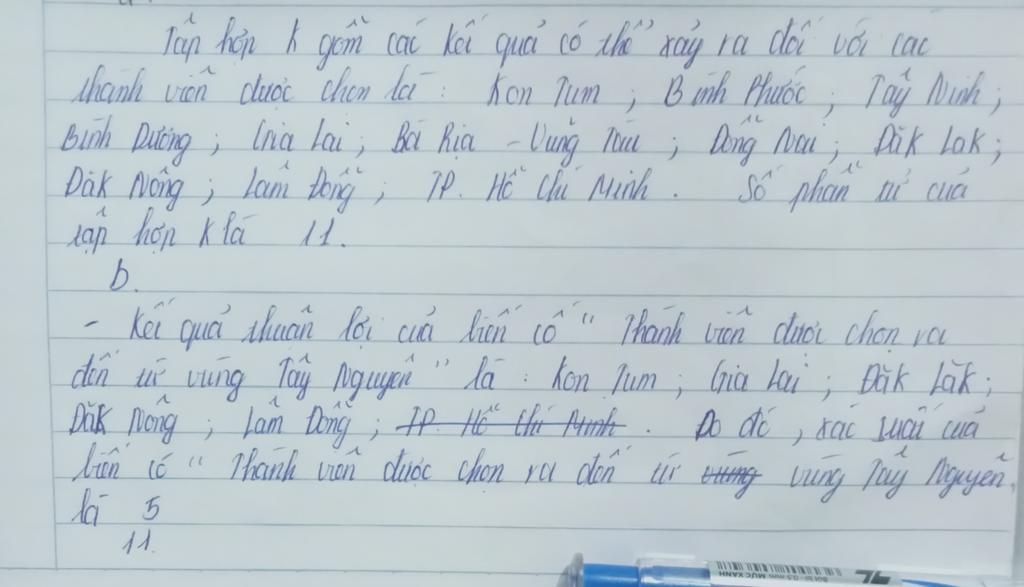 Tập hợp K gồm các kết quả có thể xảy ra đối với các
thành viên được chọn là : Kon Tum ; Bình Phước ; Tây Ninh ;
Bình Dương ; Gia Lai ; Bà Rịa - Vũng Tàu ; Đồng Nai ; Đăk Lăk ;
Đăk Nông ; Lâm Đồng ; TP. Hồ Chí Minh . Số phần tử của
tập hợp K là 11.
b.
- Kết quả thuận lợi của biến cố " Thành viên được chọn ra
đến từ vùng Tây Nguyên " là : Kon Tum ; Gia Lai ; Đăk Lăk ;
Đăk Nông ; Lâm Đồng ; TP. Hồ Chí Minh . Do đó , xác suất của
biến cố " Thành viên được chọn ra đến từ vùng vùng Tây Nguyên
là 5
11.
TL
0.5 mm MỰC XANH